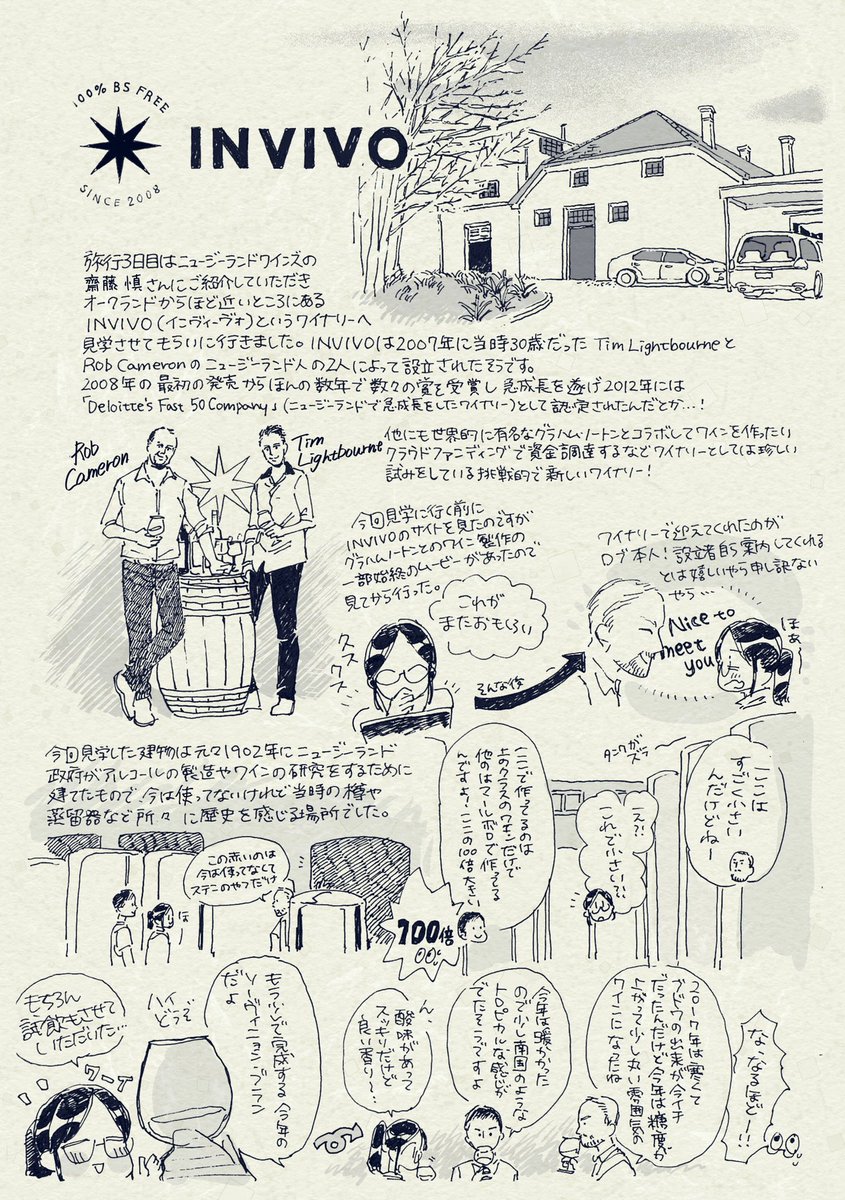 100% BS FREE
INVIVO
SINCE 2008
旅行3日目はニュージーランドワインズの
齋藤 慎さんにご紹介していただき
オークランドからほど近いところにある
INVIVO(インヴィーヴォ)というワイナリーへ
見学させてもらいに行きました。INVIVOは2007年に当時30歳だった Tim Lightbourneと
Rob Cameronのニュージーランド人の2人によって設立されたそうです。
2008年の最初の発売からほんの数年で数々の賞を受賞し急成長を遂げ2012年には
「Deloitte's Fast 50 Company」(ニュージーランドで急成長をしたワイナリー)として認定されたんだとか…!
Rob
Cameron
Tim
Lightbourne
他にも世界的に有名なグラハム・ノートンとコラボしてワインを作ったい
クラウドファンディングで資金調達するなどワイナリーとしては珍しい
試みをしている挑戦的で新しいワイナリー!
今回見学に行く前に
INVIVOのサイトを見たのですが
グラハムノートンとのワイン製作の
一部始終のムービーがあったので
見てから行った。
これが
またおもしろい
クスクス
そんな後
ワイナリーで迎えてくれたのが
ロブ本人!設立者自ら案内してくれる
とは嬉しいやら申し訳ない
やら…
Nice to
meet
you
ほぁ〜
今回見学した建物は元々1902年にニュージーランド
政府がアルコールの製造やワインの研究をするために
建てたもので、今は使ってないけれど当時の樽や
蒸留器など所々に歴史を感じる場所でした。
タンクが
ズラ
ここは
すごく小さい
んだけどねー
え?!
これで小さい?!
ここで作ってるのは
上のクラスのワインだけで
他のはマールボロで作ってる
んですよ!ここの100倍大きい
100倍
この赤いのは
今は使ってなくて
ステンのやつだけ
ほ
もちろん
試飲もさせて
いただいた
ワーイ
ハイ
どうぞ
もうすぐで完成する今年の
ソーヴィニヨン・ブラン
だよ
ん、
酸味があって
スッキリだけど
良い香り〜…
今年は暖かかった
ので少し南国のような
トロピカルな感じが
でたそうですよ
2017年は寒くて
ブドウの出来が今イチ
だったんだけど今年は糖度が
上がって少し丸い雰囲気の
ワインになったね
な、なるほどー!!